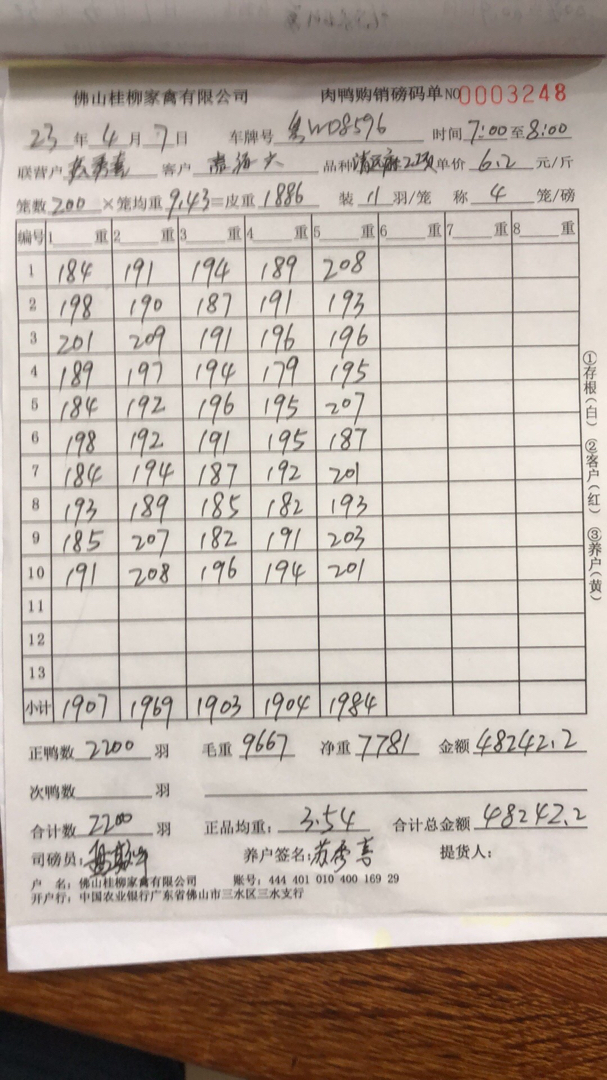 佛山桂柳家禽有限公司 肉鸭购销磅码单 NO 0003248
23 年 4 月 7 日 车牌号 粤W08596 时间 7:00 至 8:00
联营户 客户 品种 单价 6.2 元/斤
笼数 200 ×笼均重 9.43 =皮重 1886 装 11 羽/笼 称 4 笼/磅
编号 1 重 2 重 3 重 4 重 5 重 6 重 7 重 8 重
1 184 191 194 189 208
2 198 190 187 191 193
3 201 209 191 196 196
4 189 197 194 179 195
5 184 192 196 195 207
6 198 192 191 195 187
7 184 194 187 192 201
8 193 189 185 182 193
9 185 207 182 191 203
10 191 208 196 194 201
11
12
13
小计 1907 1969 1903 1904 1984
正鸭数 2200 羽 毛重 9667 净重 7781 金额 48242.2
次鸭数 羽
合计数 2200 羽 正品均重: 3.54 合计总金额 48242.2
司磅员: 养户签名: 苏秀喜 提货人:
户 名: 佛山桂柳家禽有限公司 账号: 444 401 010 400 169 29
开户行: 中国农业银行广东省佛山市三水区三水支行
①存根(白) ②客户(红) ③养户(黄)